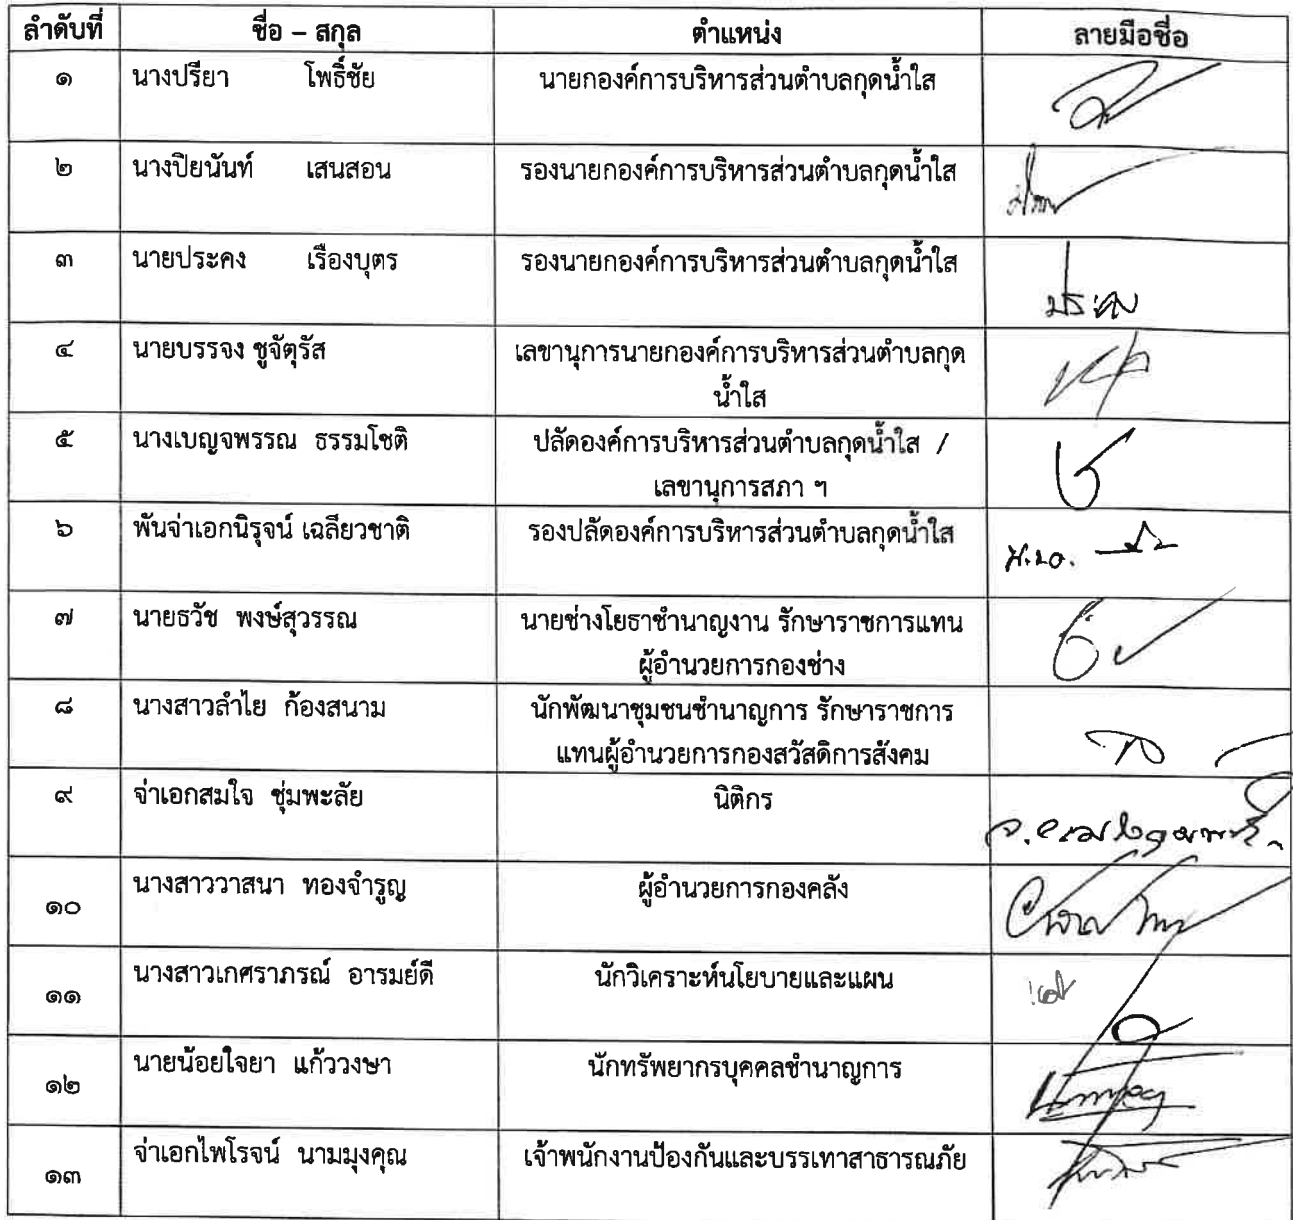 ลำดับที่ ชื่อ – สกุล ตำแหน่ง ลายมือชื่อ
๑ นางปรียา โพธิ์ชัย นายกองค์การบริหารส่วนตำบลกุดน้ำใส
๒ นางปิยนันท์ เสนสอน รองนายกองค์การบริหารส่วนตำบลกุดน้ำใส
๓ นายประคง เรืองบุตร รองนายกองค์การบริหารส่วนตำบลกุดน้ำใส
ประคง
๔ นายบรรจง ชูจัตุรัส เลขานุการนายกองค์การบริหารส่วนตำบลกุด
น้ำใส
๕ นางเบญจพรรณ ธรรมโชติ ปลัดองค์การบริหารส่วนตำบลกุดน้ำใส /
เลขานุการสภา ฯ
๖ พันจ่าเอกนิรุจน์ เฉลียวชาติ รองปลัดองค์การบริหารส่วนตำบลกุดน้ำใส
๗ นายธวัช พงษ์สุวรรณ นายช่างโยธาชำนาญงาน รักษาราชการแทน
ผู้อำนวยการกองช่าง
๘ นางสาวลำไย ก้องสนาม นักพัฒนาชุมชนชำนาญการ รักษาราชการ
แทนผู้อำนวยการกองสวัสดิการสังคม
๙ จ่าเอกสมใจ ชุ่มพะลัย นิติกร
๑๐ นางสาววาสนา ทองจำรูญ ผู้อำนวยการกองคลัง
๑๑ นางสาวเกศราภรณ์ อารมย์ดี นักวิเคราะห์นโยบายและแผน
๑๒ นายน้อยใจยา แก้ววงษา นักทรัพยากรบุคคลชำนาญการ
๑๓ จ่าเอกไพโรจน์ นามมุงคุณ เจ้าพนักงานป้องกันและบรรเทาสาธารณภัย